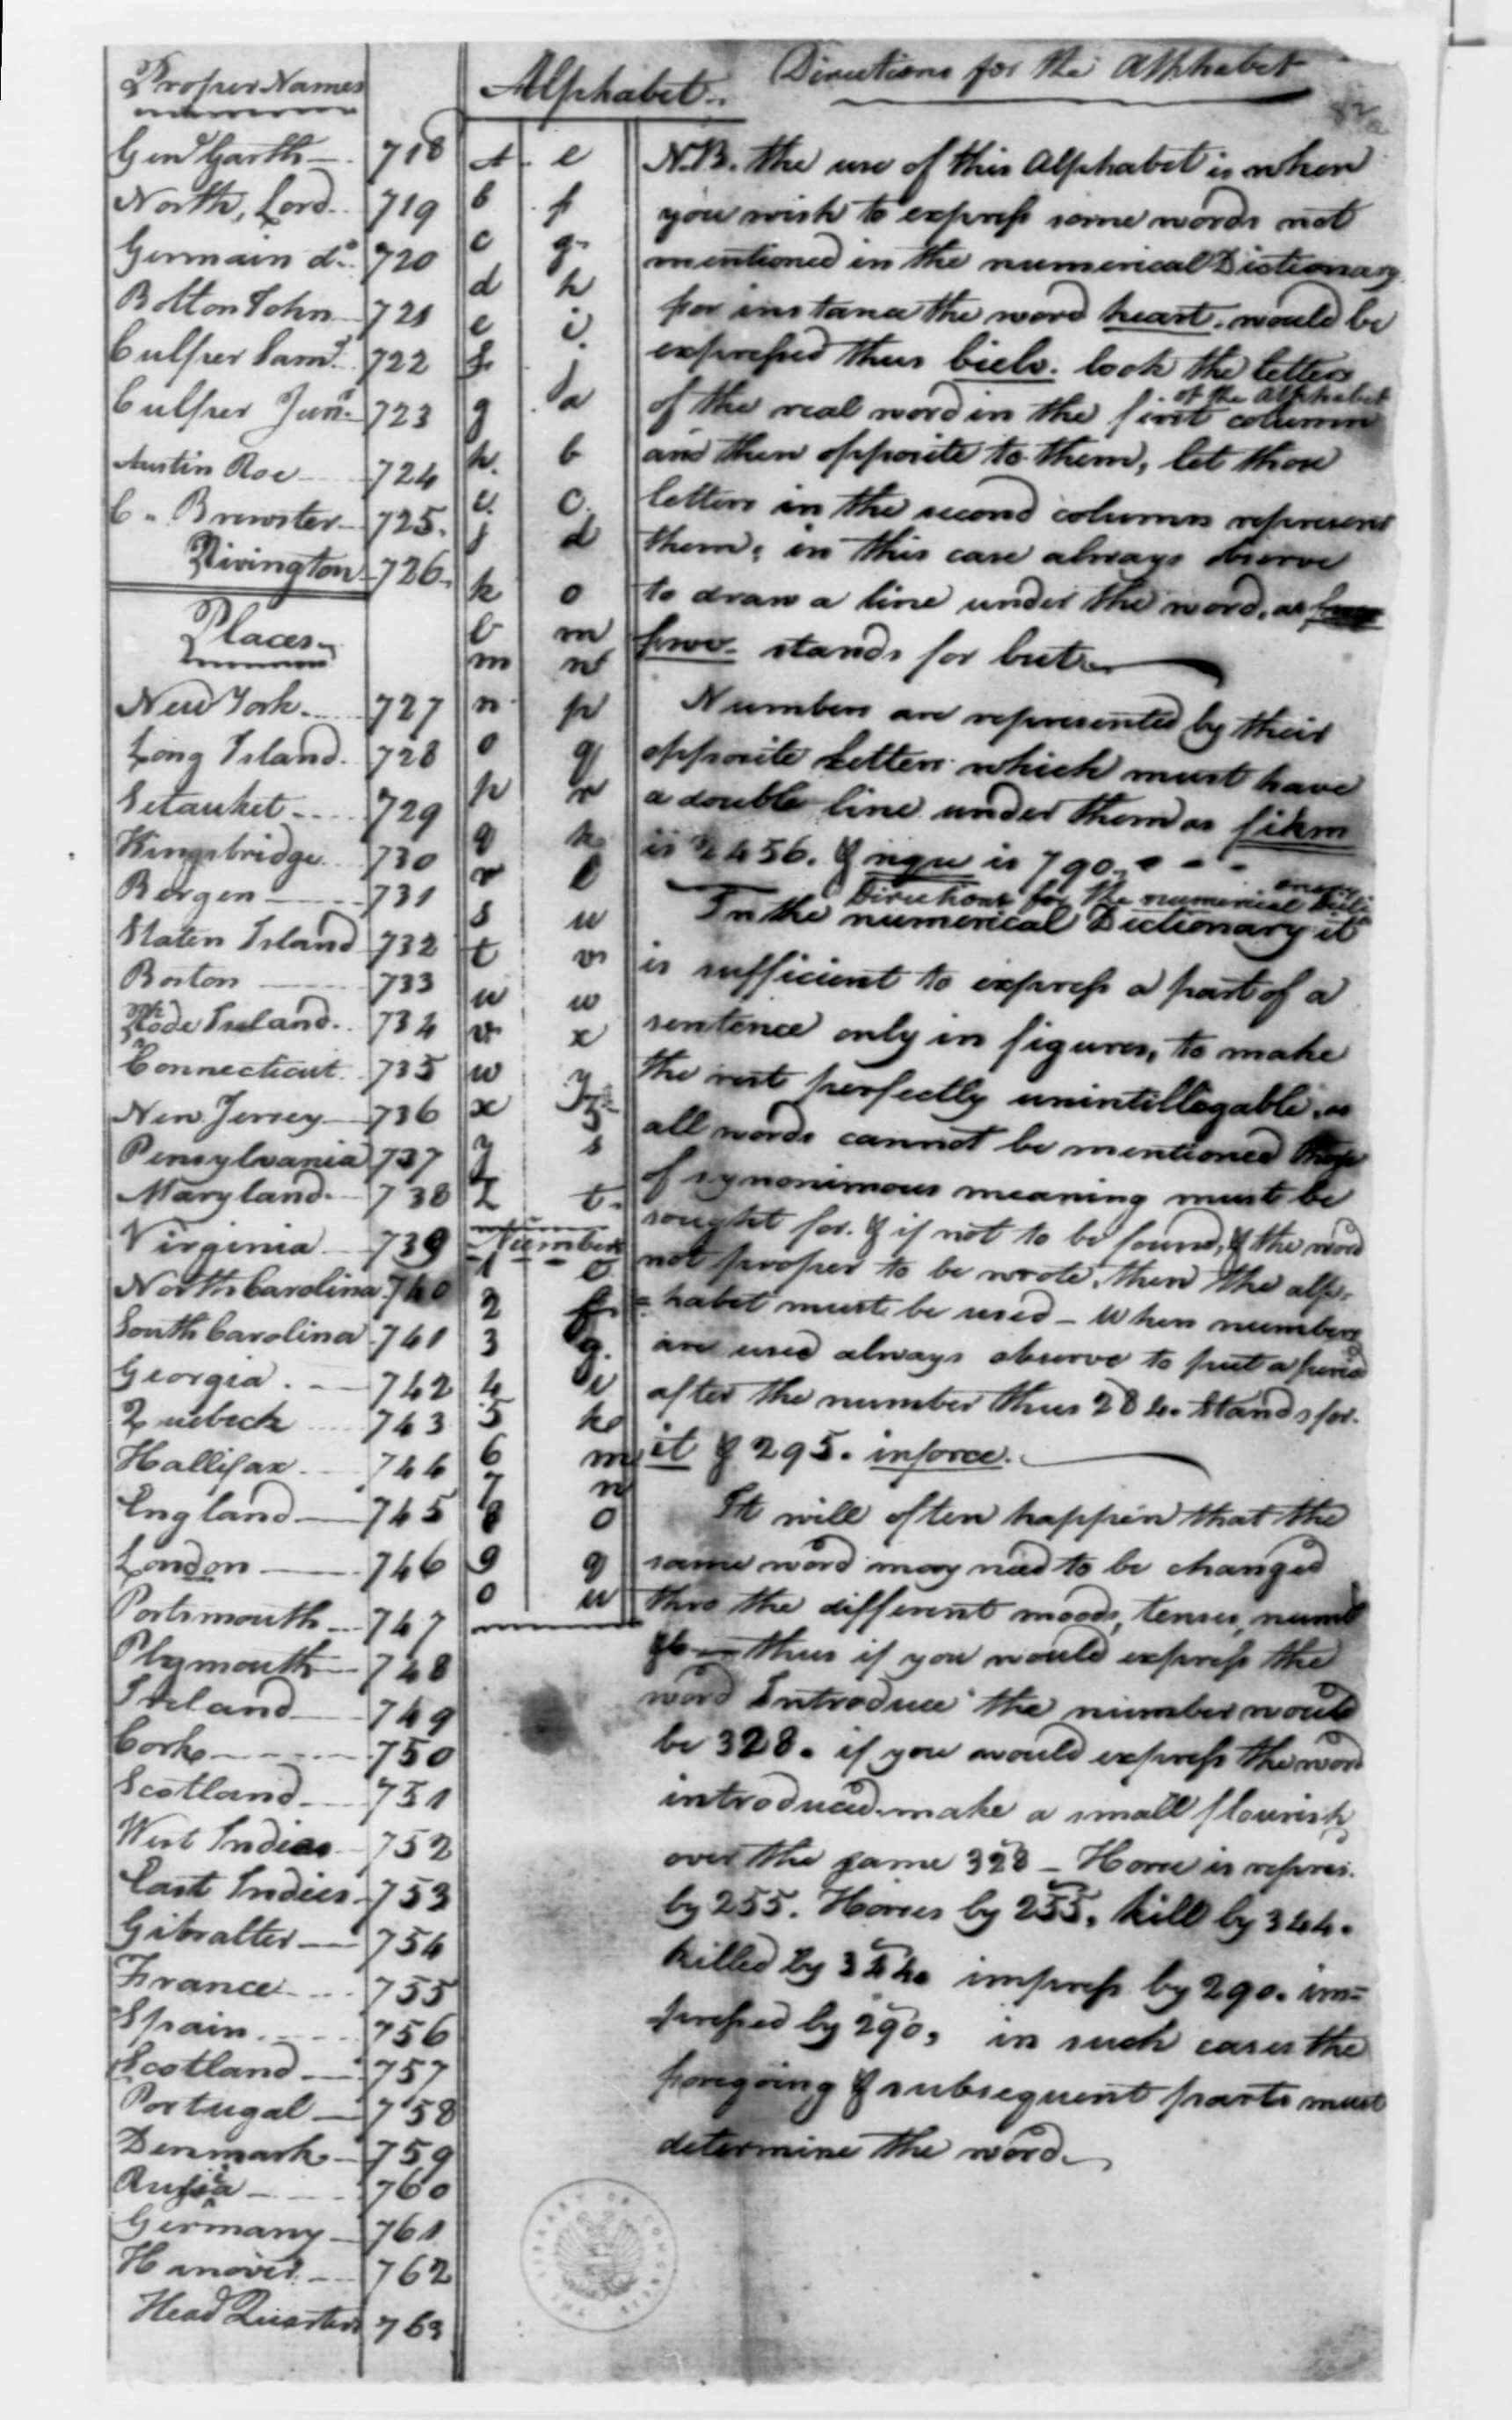 Proper Names
Gen.l Garth — 718
North, Lord. 719
Germain do. 720
Bolton John 721
Culper Sam.l 722
Culper Jun.r 723
Austin Roe 724
C. Brewster 725.
Rivington 726.
Places
New York 727
Long Island. 728
Setauket 729
Kingsbridge 730
Bergen 731
Staten Island 732
Boston 733
Rhode Island. 734
Connecticut. 735
New Jersey 736
Pensylvania 737
Maryland. 738
Virginia 739
North Carolina. 740
South Carolina 741
Georgia. 742
Quebeck 743
Hallifax 744
England 745
London 746
Portsmouth 747
Plymouth 748
Ireland 749
Cork 750
Scotland 751
West Indies 752
East Indies 753
Gibralter 754
France 755
Spain. 756
Scotland 757
Portugal 758
Denmark 759
Russia 760
Germany 761
Hanover 762
Head Quarters 763
Alphabet
A e
b f
c g
d h
e i
f j
g a
h b
i c
j d
k o
l m
m n
n p
o q
p r
q k
r l
s u
t v
u w
v x
w y
x z
y s
z t
Numbers
1 e
2 f
3 g
4 i
5 k
6 m
7 n
8 o
9 q
0 u
Directions for the Alphabet
N.B. the use of this Alphabet is when
you wish to express some words not
mentioned in the numerical Dictionary
for instance the word heart. would be
expressed thus bielv. look the letters
of the real word in the first column of the Alphabet
and then opposite to them, let those
letters in the second column represent
them; in this case always observe
to draw a line under the word, as
fwv. stands for but
Numbers are represented by their
opposite letters which must have
a double line under them as fikm
is 2456. & nqu is 790.
Directions for the numerical Dictionary
In the numerical Dictionary it
is sufficient to express a part of a
sentence only in figures, to make
the rest perfectly unintillegable, as
all words cannot be mentioned those
of synonimous meaning must be
sought for. & if not to be found, & the word
not proper to be wrote, then the alp-
=habet must be used – When numbers
are used always observe to put a period
after the number thus 284. stands for.
it & 295. inforce.
It will often happen that the
same word may need to be changed
thro the different moods, tenses, numb
&c — thus if you would express the
word Introduce the number would
be 328. if you would express the word
introduced make a small flourish
over the same 328 – Horse is repres.
by 255. Horses by 255, kill by 344.
killed by 344. impress by 290. im=
pressed by 290, in such cases the
foregoing & subsequent parts must
determine the word.
LIBRARY OF CONGRESS